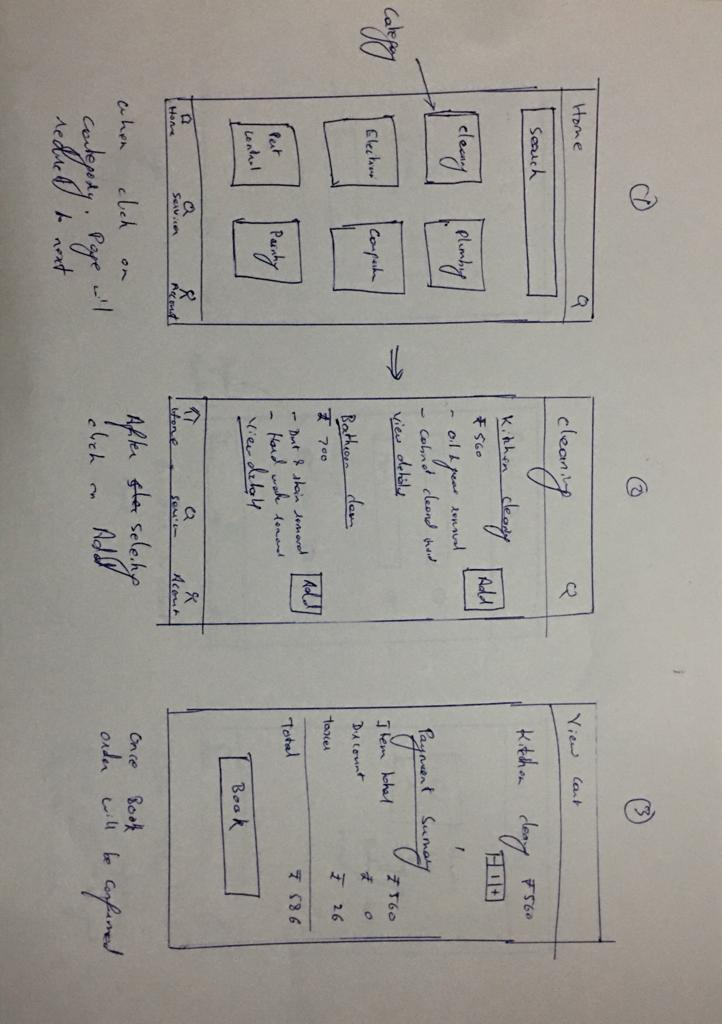 ①
Category
Home
Search
Cleany
Plumbing
Electrian
Carpenter
Pest
control
Painty
Home
Services
Account
when click on
category. Page will
redirect to next
②
Cleaning
Kitchen cleany
₹ 560
Add
- oil & grease removal
View details
Bathroom clean
₹ 700
Add
- Dirt & stain removal
View details
Home
Service
Account
After selecting
click on Add
③
View Cart
Kitchen cleany ₹ 560
- 1 +
Payment Summary
Item total ₹ 560
Discount ₹ 0
Taxes ₹ 26
Total ₹ 586
Book
Once Book
order will be confirmed